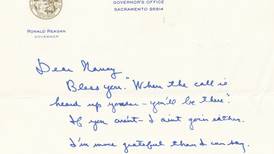 GOVERNOR'S OFFICE
SACRAMENTO 95814
RONALD REAGAN
GOVERNOR
Dear Nancy
Bless you. "When the call is
heard up yonder - you'll be there".
If you aren't I ain't goin either.
I'm more grateful than I can say.